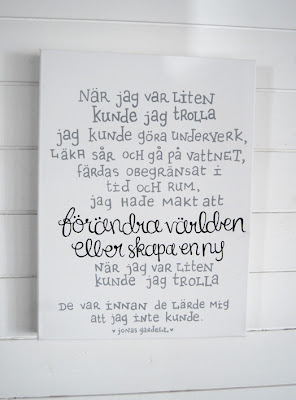 När jag var liten
kunde jag trolla
jag kunde göra underverk,
läka sår och gå på vattnet,
färdas obegränsat i
tid och rum,
jag hade makt att
förändra världen
eller skapa en ny
när jag var liten
kunde jag trolla
De var innan de lärde mig
att jag inte kunde.
♥ jonas gardell ♥